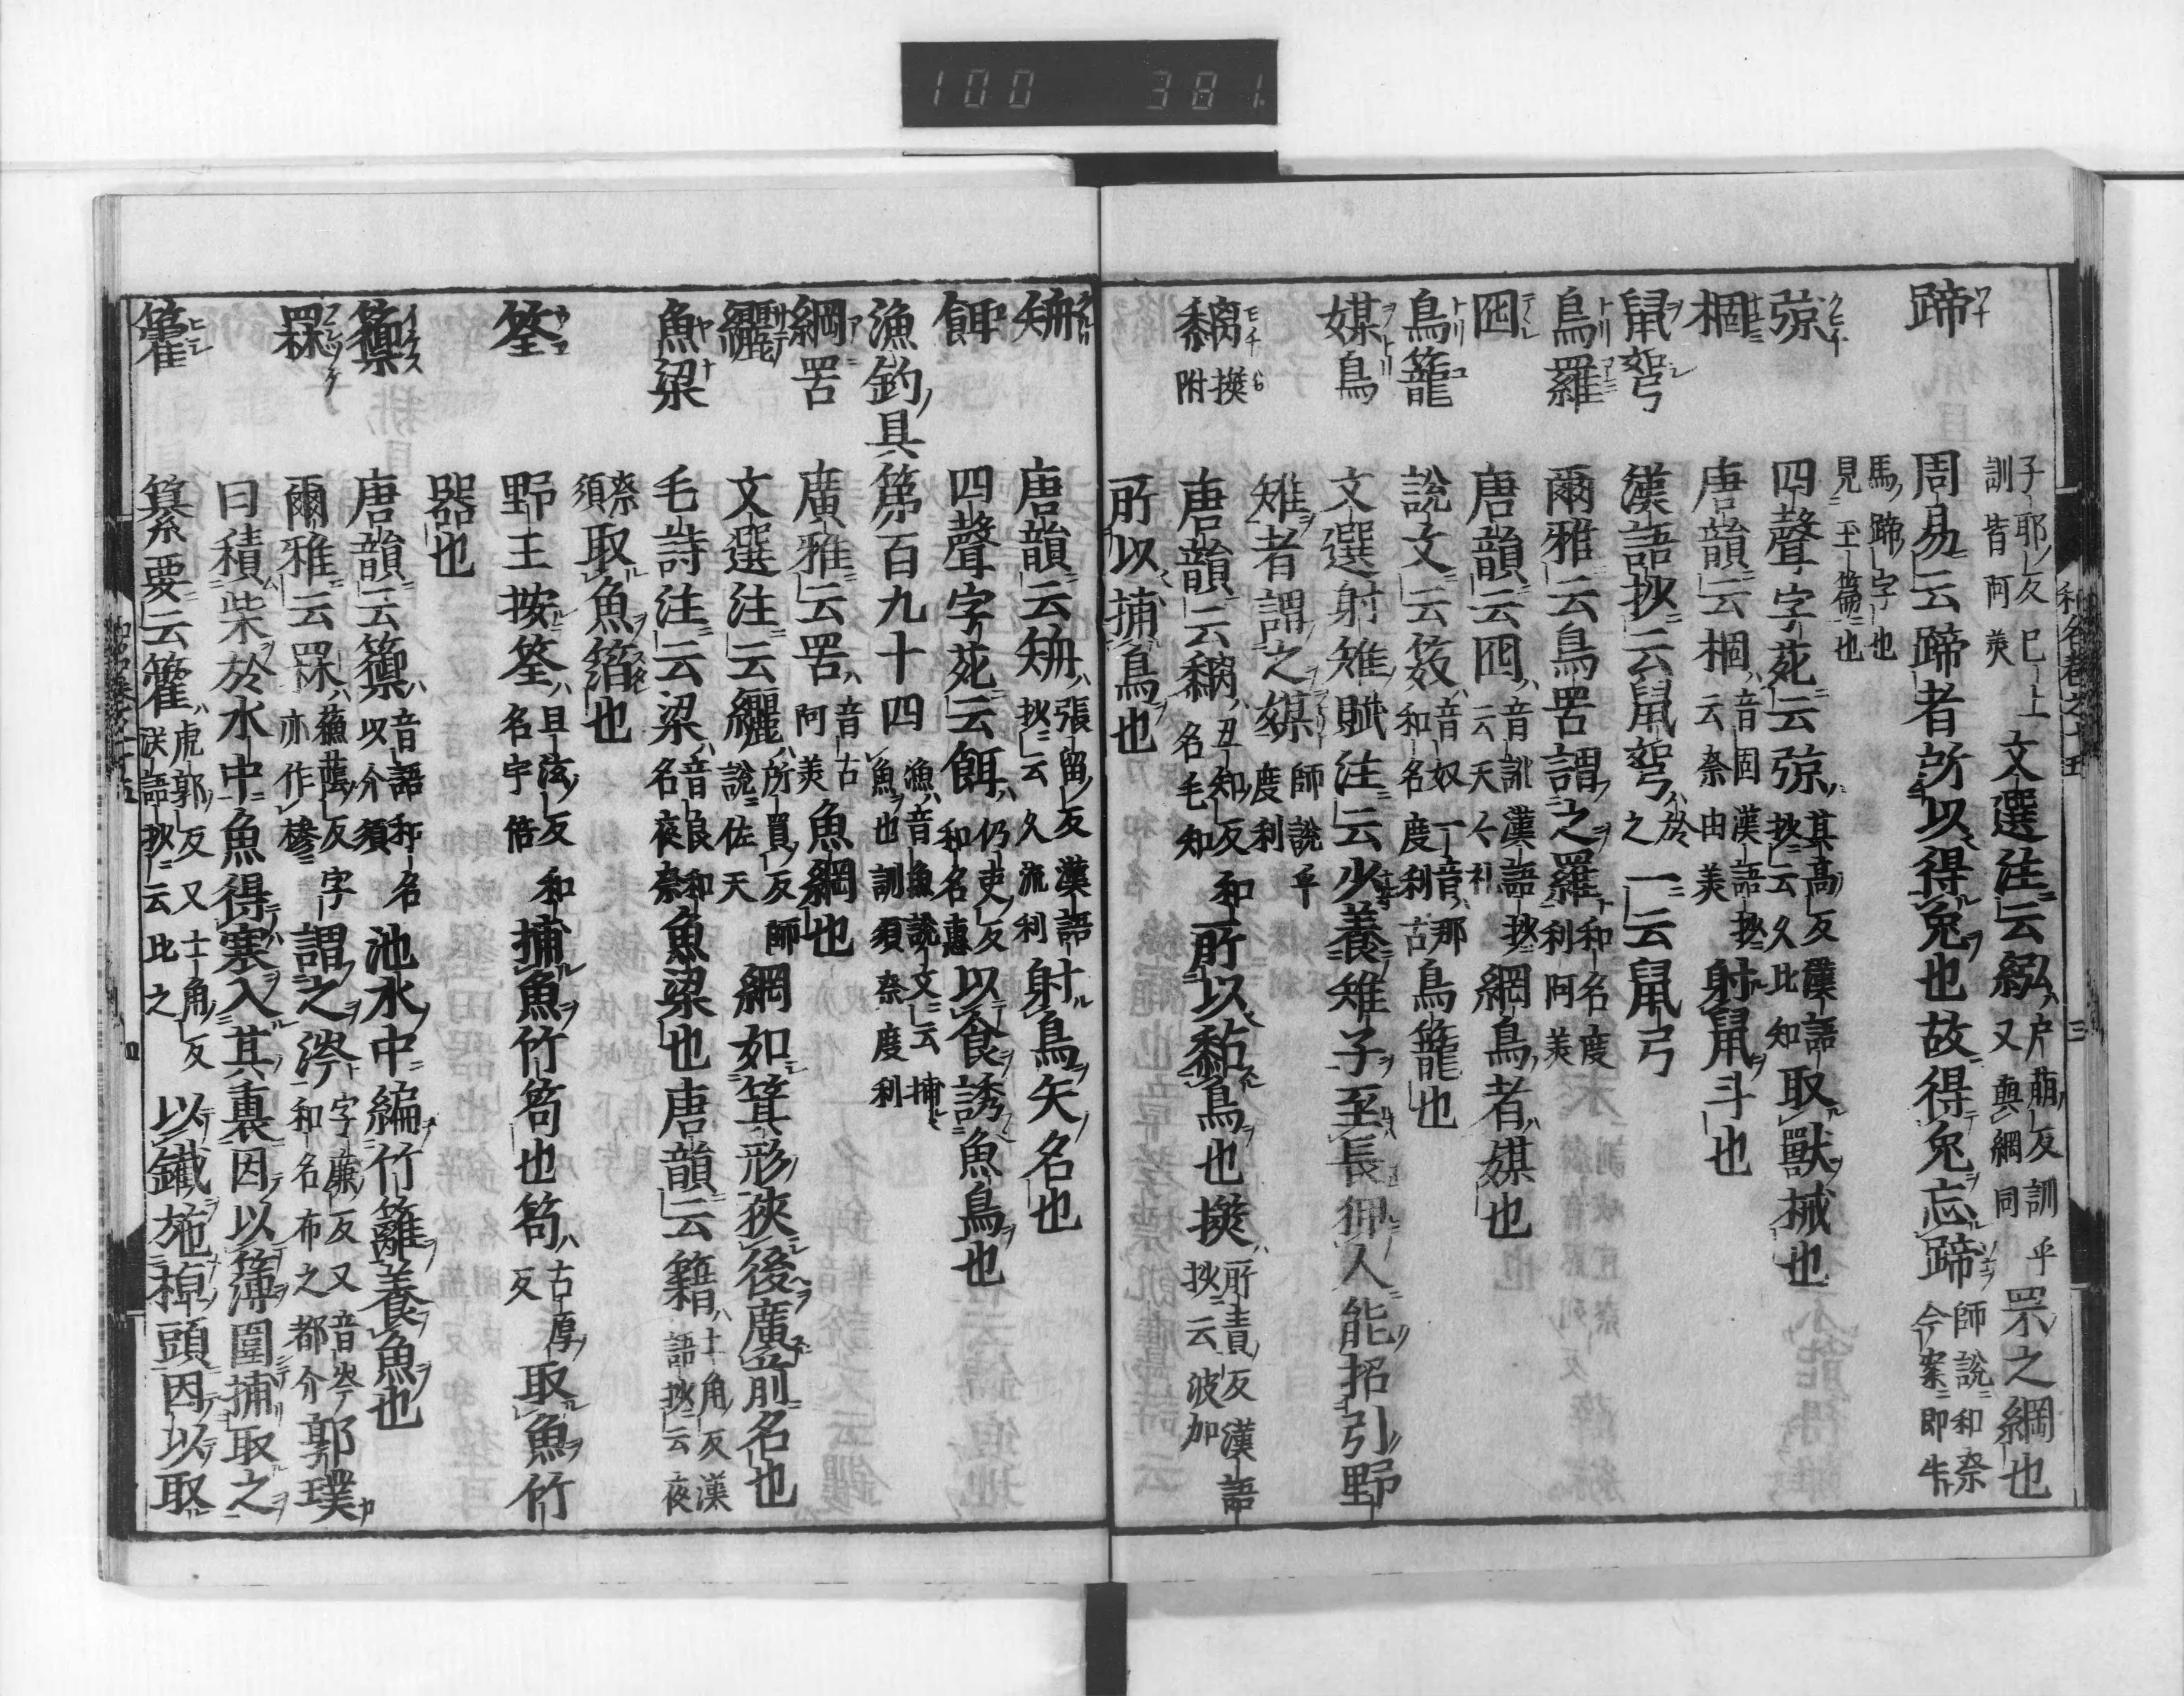 100 381.
子耶反已上訓皆阿美 文選注云紭戸萠反訓乎又與綱同 罘之綱也
蹄 周易云蹄者所以得兔也故得兔忘蹄師説和奈今案即牛
馬蹄字也見玉篇也
弶 四聲字苑云弶其高反漢語抄云久比知 取獸械也
棝 唐韻云棝音固漢語抄云奈由美 射鼠斗也
鼠弩 漢語抄云鼠弩於之 一云鼠弓
鳥羅 爾雅云鳥罟謂之羅和名度利阿美
囮 唐韻云囮音訛漢語抄云天々礼 網鳥者媒也
鳥籠 説文云笯音奴一音那和名度利古 鳥籠也
媒鳥 文選射雉賦注云少養雉子至長狎人能招引野
雉者謂之媒師説乎度利
黐擌附 唐韻云黐丑知反和名毛知 所以黏鳥也擌所責反漢語抄云波加
所以捕鳥也
唐韻云 張留反漢語抄云久流利 射鳥矢名也
餌 四聲字苑云餌仍吏反和名恵 以食誘魚鳥也
漁釣具第百九十四漁音魚説文云捕魚也訓須奈度利
網罟 廣雅云罟音古阿美 魚網也
纚 文選注云纚所買反師説佐天 網如箕形狹後廣前名也
魚梁 毛詩注云梁音良和名夜奈 魚梁也唐韻云籍士角反漢語抄云夜
奈須 取魚箔也
筌 野王按筌且泫反和名宇倍 捕魚竹笱也笱古厚反 取魚竹
器也
籞 唐韻云籞音語和名以介須 池水中編竹籬養魚也
罧 爾雅云罧蘓蔭反字亦作椮 謂之涔字廉反又音岑和名布之都介 郭璞
曰積柴於水中魚得寒入其裏因以簿圍捕取之
籗 纂要云籗虎郭反又士角反漢語抄云比之 以鐵施棹頭因以取
和名巻之十五
三
四